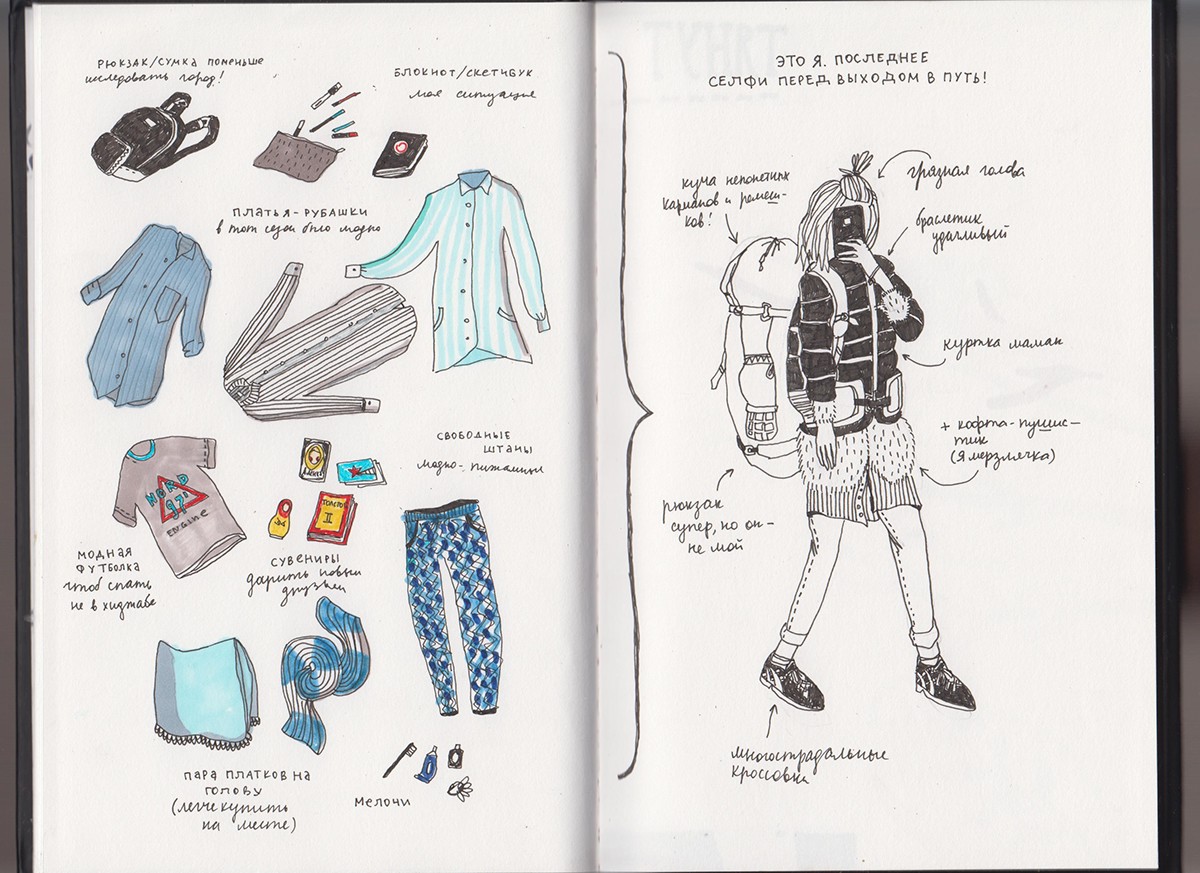 РЮКЗАК/СУМКА ПОМЕНЬШЕ
исследовать город!
БЛОКНОТ/СКЕТЧБУК
моя ситуация
ПЛАТЬЯ-РУБАШКИ
в тот сезон было модно
СВОБОДНЫЕ
ШТАНЫ
модно-пижамин
NORD
97'
ТОЛСТОЙ
II
МОДНАЯ
ФУТБОЛКА
чтоб спать
не в хиджабе
СУВЕНИРЫ
дарить новым
друзьям
ПАРА ПЛАТКОВ НА
ГОЛОВУ
(легче купить
на месте)
МЕЛОЧИ
ТЯНУТ
ЭТО Я. ПОСЛЕДНЕЕ
СЕЛФИ ПЕРЕД ВЫХОДОМ В ПУТЬ!
куча непонятных
карманов и ремеш-
ков!
грязная голова
браслетик
удачливый
куртка маман
+ кофта-пушис-
тик
(я мерзлячка)
рюкзак
супер, но он-
не мой
многострадальные
кроссовки